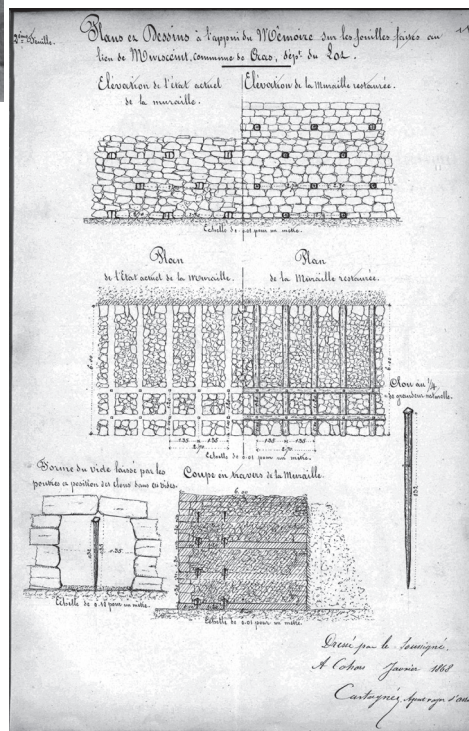 2ème Feuille.
Plans et Dessins à l'appui du Mémoire sur les fouilles faites au
lieu de Murscent, commune de Cras, dépt. du Lot.
Elévation de l'état actuel
de la muraille.
Elévation de la Muraille restaurée.
Echelle de 0.01 pour un mètre.
Plan
de l'Etat actuel de la Muraille.
Plan
de la Muraille restaurée.
6.00
6.00
1.35 1.35
2.70
1.35 1.35
2.70
Echelle de 0.01 pour un mètre.
Clou au 1/4
de grandeur naturelle.
Forme du vide laissé par les
poutres et position des clous dans ces vides.
Coupe en travers de la Muraille.
6.00
Echelle de pour un mètre.
Echelle de 0.01 pour un mètre.
Dressé par le Soussigné.
A Cahors Janvier 1868
Castagné